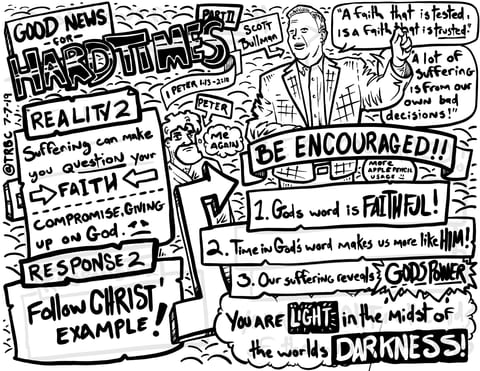 GOOD NEWS
-FOR-
HARD TIMES
PART II
SCOTT
Bullman
"A faith that is tested,
is a faith that is trusted!"
A lot of
suffering
is from our
own bad
decisions!"
@TRBC 7-7-19
1 PETER 1:13-2:11
PETER
ME
AGAIN!
REALITY 2
Suffering can make
you QUESTION your
FAITH
COMPROMISE, GIVING
up on God.
RESPONSE 2
Follow CHRIST'
EXAMPLE!
BE ENCOURAGED!!
MORE
APPLE PENCIL
USAGE
1. Gods word is FAITHFUL!
2. Time in God's word makes us more like HIM!
3. Our suffering reveals GODS POWER
YOU ARE LIGHT in the midst of
the worlds DARKNESS!